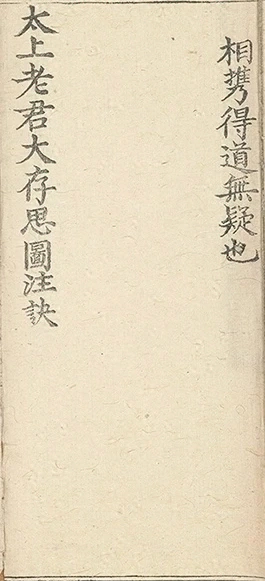 相携得道無疑也
太上老君大存思圖注訣